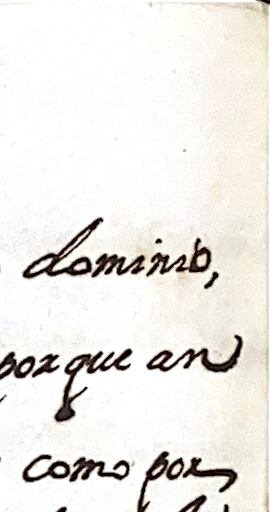 dominio,
porque an
como por